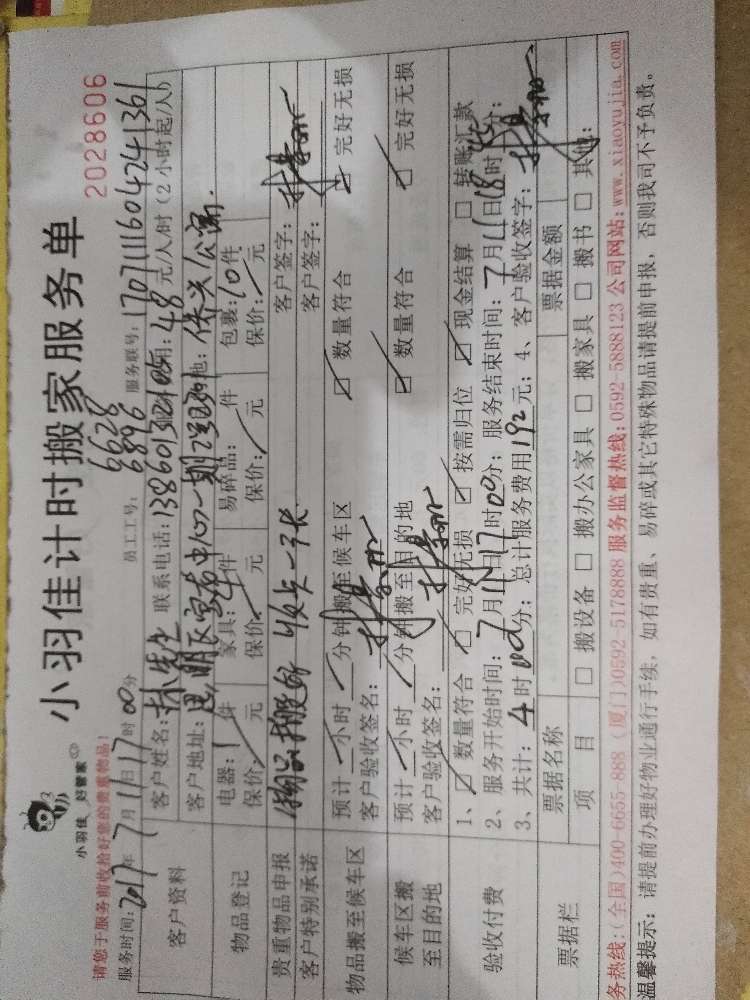 小羽佳 好管家
小羽佳计时搬家服务单
2028606
6628
6896
请您于服务前收拾好您的贵重物品!
服务时间: 2017年 7月 11日 17时 00分 员工工号: 服务联号: 17071116042241361
客户资料
客户姓名: 林先生 联系电话: 用: 48元/人/时 (2小时起/人)
客户地址: 思明区 中心一期 地: 侨兴公寓
物品登记
电器: 1件 家具: 件 易碎品: 件 包裹: 10件
保价: 元 保价: 元 保价: 元 保价: 元
贵重物品申报 客户签字:
客户特别承诺 客户签字:
物品搬至候车区
预计 小时 分钟搬至候车区 ☑ 数量符合 ☑ 完好无损
客户验收签名:
候车区搬至目的地
预计 小时 分钟搬至目的地 ☑ 数量符合 ☑ 完好无损
客户验收签名:
验收付费
1、☑ 数量符合 ☑ 完好无损 ☑ 按需归位 ☑ 现金结算 □ 转账汇款
2、服务开始时间: 7月 11日 17时 00分; 服务结束时间: 7月 11日 18时 分;
3、共计: 4时 00分; 总计服务费用 192元; 4、客户验收签字:
票据栏
票据名称 票据金额
项目 □ 搬设备 □ 搬办公家具 □ 搬家具 □ 搬书 □ 其他:
务热线:(全国)400-6655-888 (厦门)0592-5178888 服务监督热线:0592-5888123 公司网站:www.xiaoyujia.com
温馨提示: 请提前办理好物业通行手续, 如有贵重、易碎或其它特殊物品请提前申报, 否则我司不予负责。